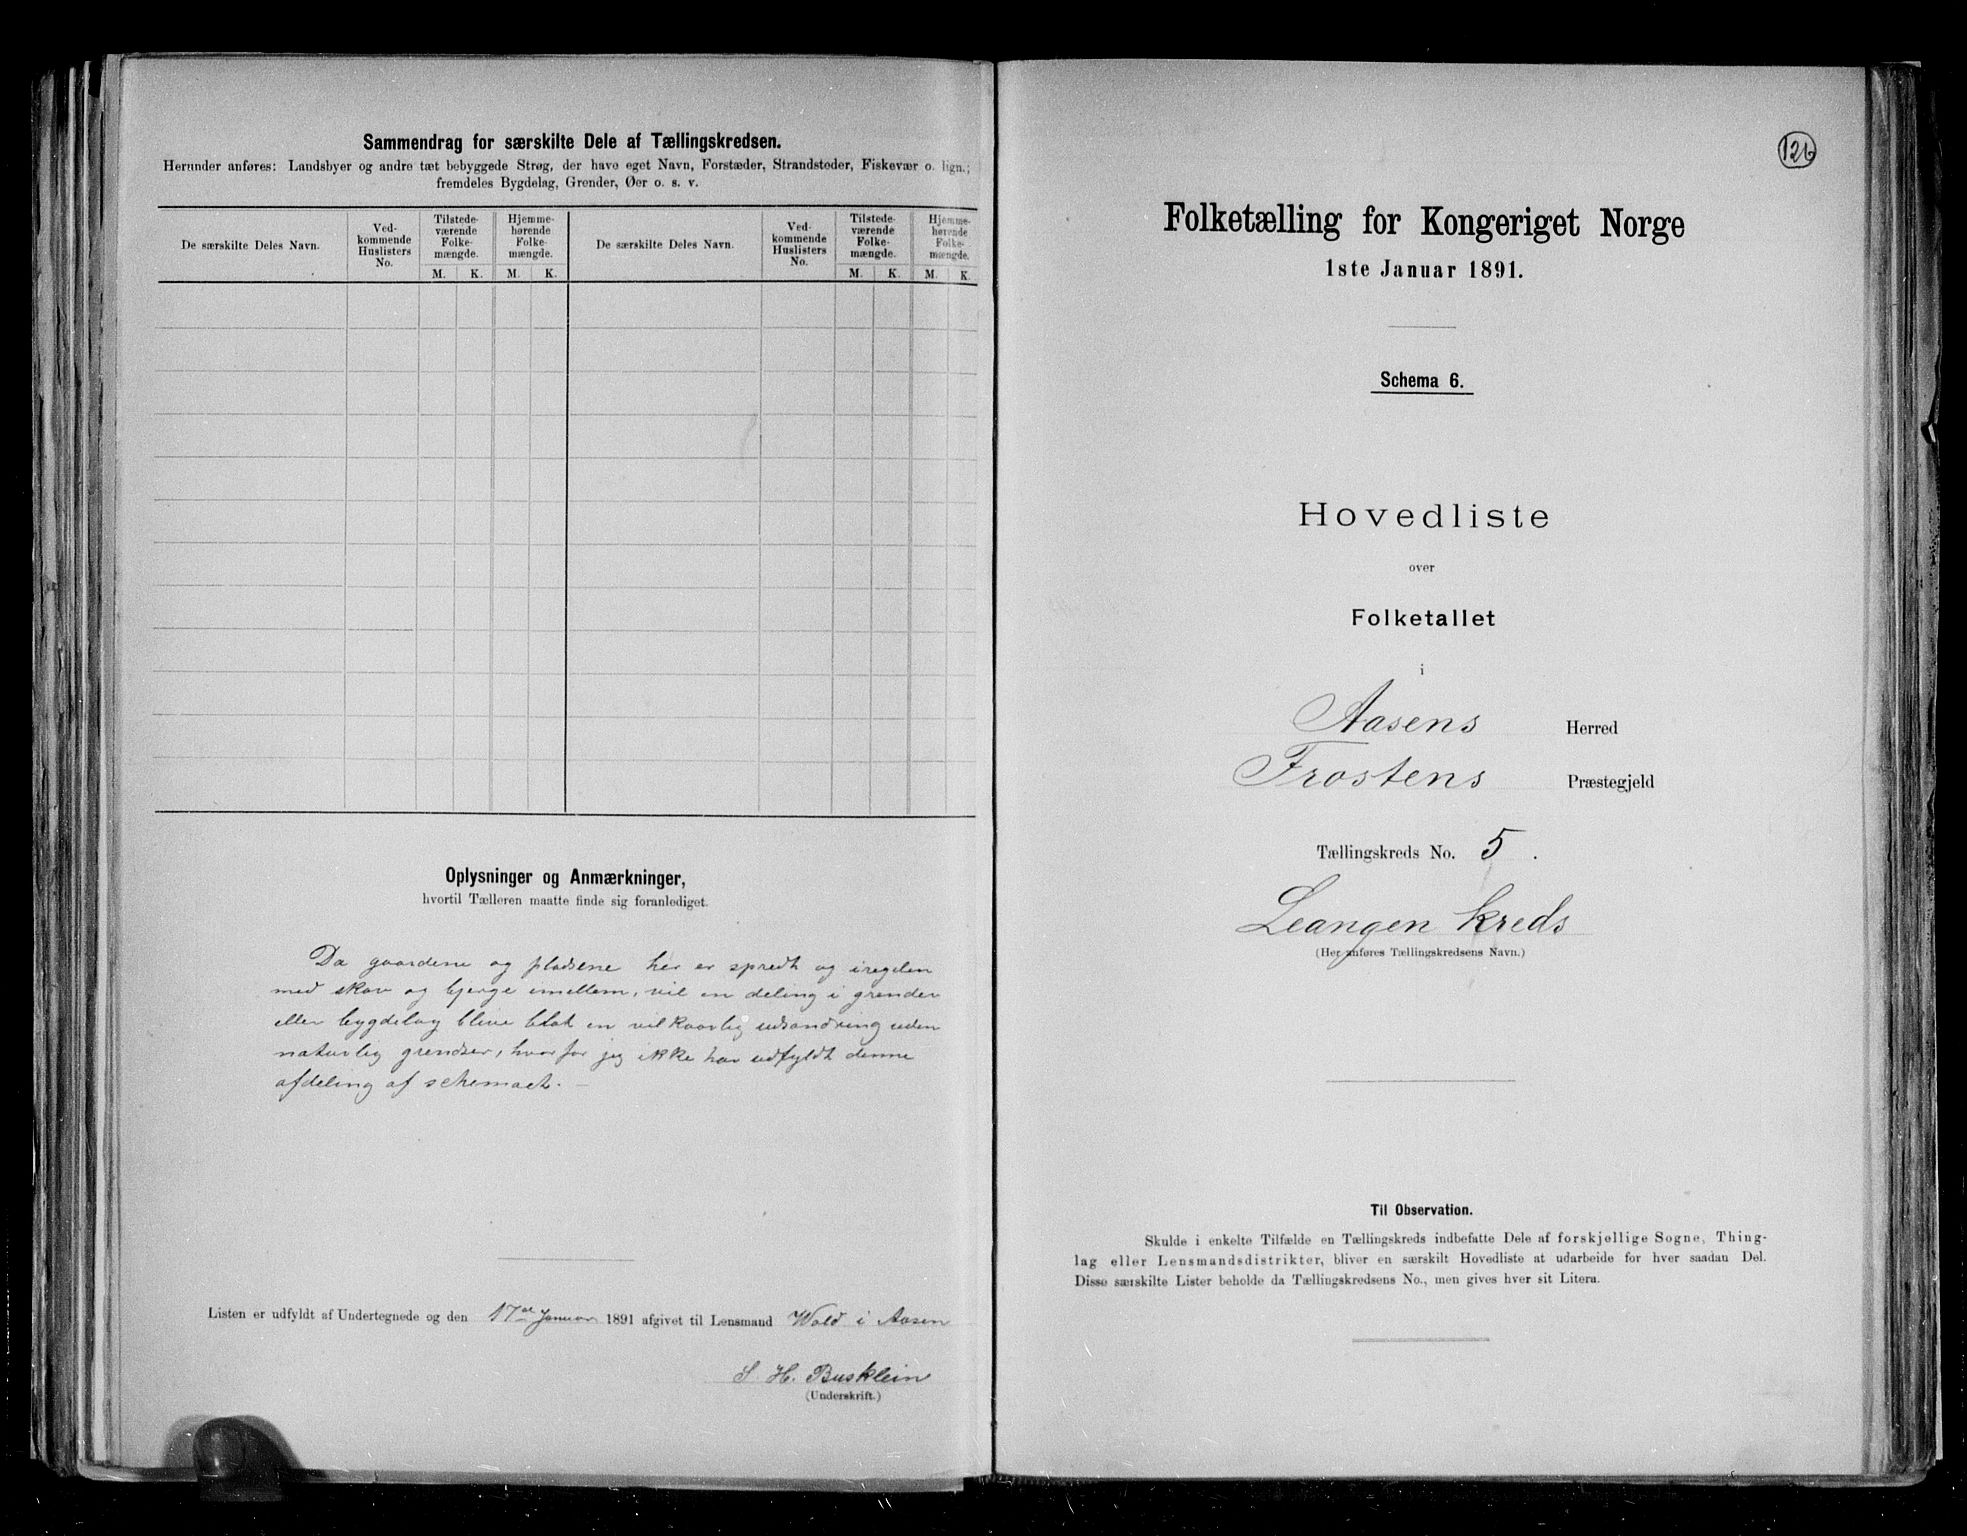 Sammendrag for særskilte Dele af Tællingskredsen.
Herunder anføres: Landsbyer og andre tæt bebyggede Strøg, der have eget Navn, Forstæder, Strandsteder, Fiskevær o. lign.;
fremdeles Bygdelag, Grender, Øer o. s. v.
De særskilte Deles Navn.
Ved-
kommende
Huslisters
No.
Tilstede-
værende
Folke-
mængde.
M. K.
Hjemme-
hørende
Folke-
mængde.
M. K.
De særskilte Deles Navn.
Ved-
kommende
Huslisters
No.
Tilstede-
værende
Folke-
mængde.
M. K.
Hjemme-
hørende
Folke-
mængde.
M. K.
Oplysninger og Anmærkninger,
hvortil Tælleren maatte finde sig foranlediget.
Da gaardene og pladsene her er spredt og iregelen
med skov og bjerge imellem, vil en deling i grender
eller bygdelag blive blot en vilkaarlig udsondring uden
naturlig grendser, hvorfor jeg ikke har udfyldt denne
afdeling af schemaet. –
Listen er udfyldt af Undertegnede og den 17de Januar 1891 afgivet til Lensmand Wold i Aasen
S H. Busklein
(Underskrift.)
126
Folketælling for Kongeriget Norge
1ste Januar 1891.
Schema 6.
Hovedliste
over
Folketallet
i
Aasens Herred
Frostens Præstegjeld
Tællingskreds No. 5.
Leangen Kreds
(Her anføres Tællingskredsens Navn.)
Til Observation.
Skulde i enkelte Tilfælde en Tællingskreds indbefatte Dele af forskjellige Sogne, Thing-
lag eller Lensmandsdistrikter, bliver en særskilt Hovedliste at udarbeide for hver saadan Del.
Disse særskilte Lister beholde da Tællingskredsens No., men gives hver sit Litera.